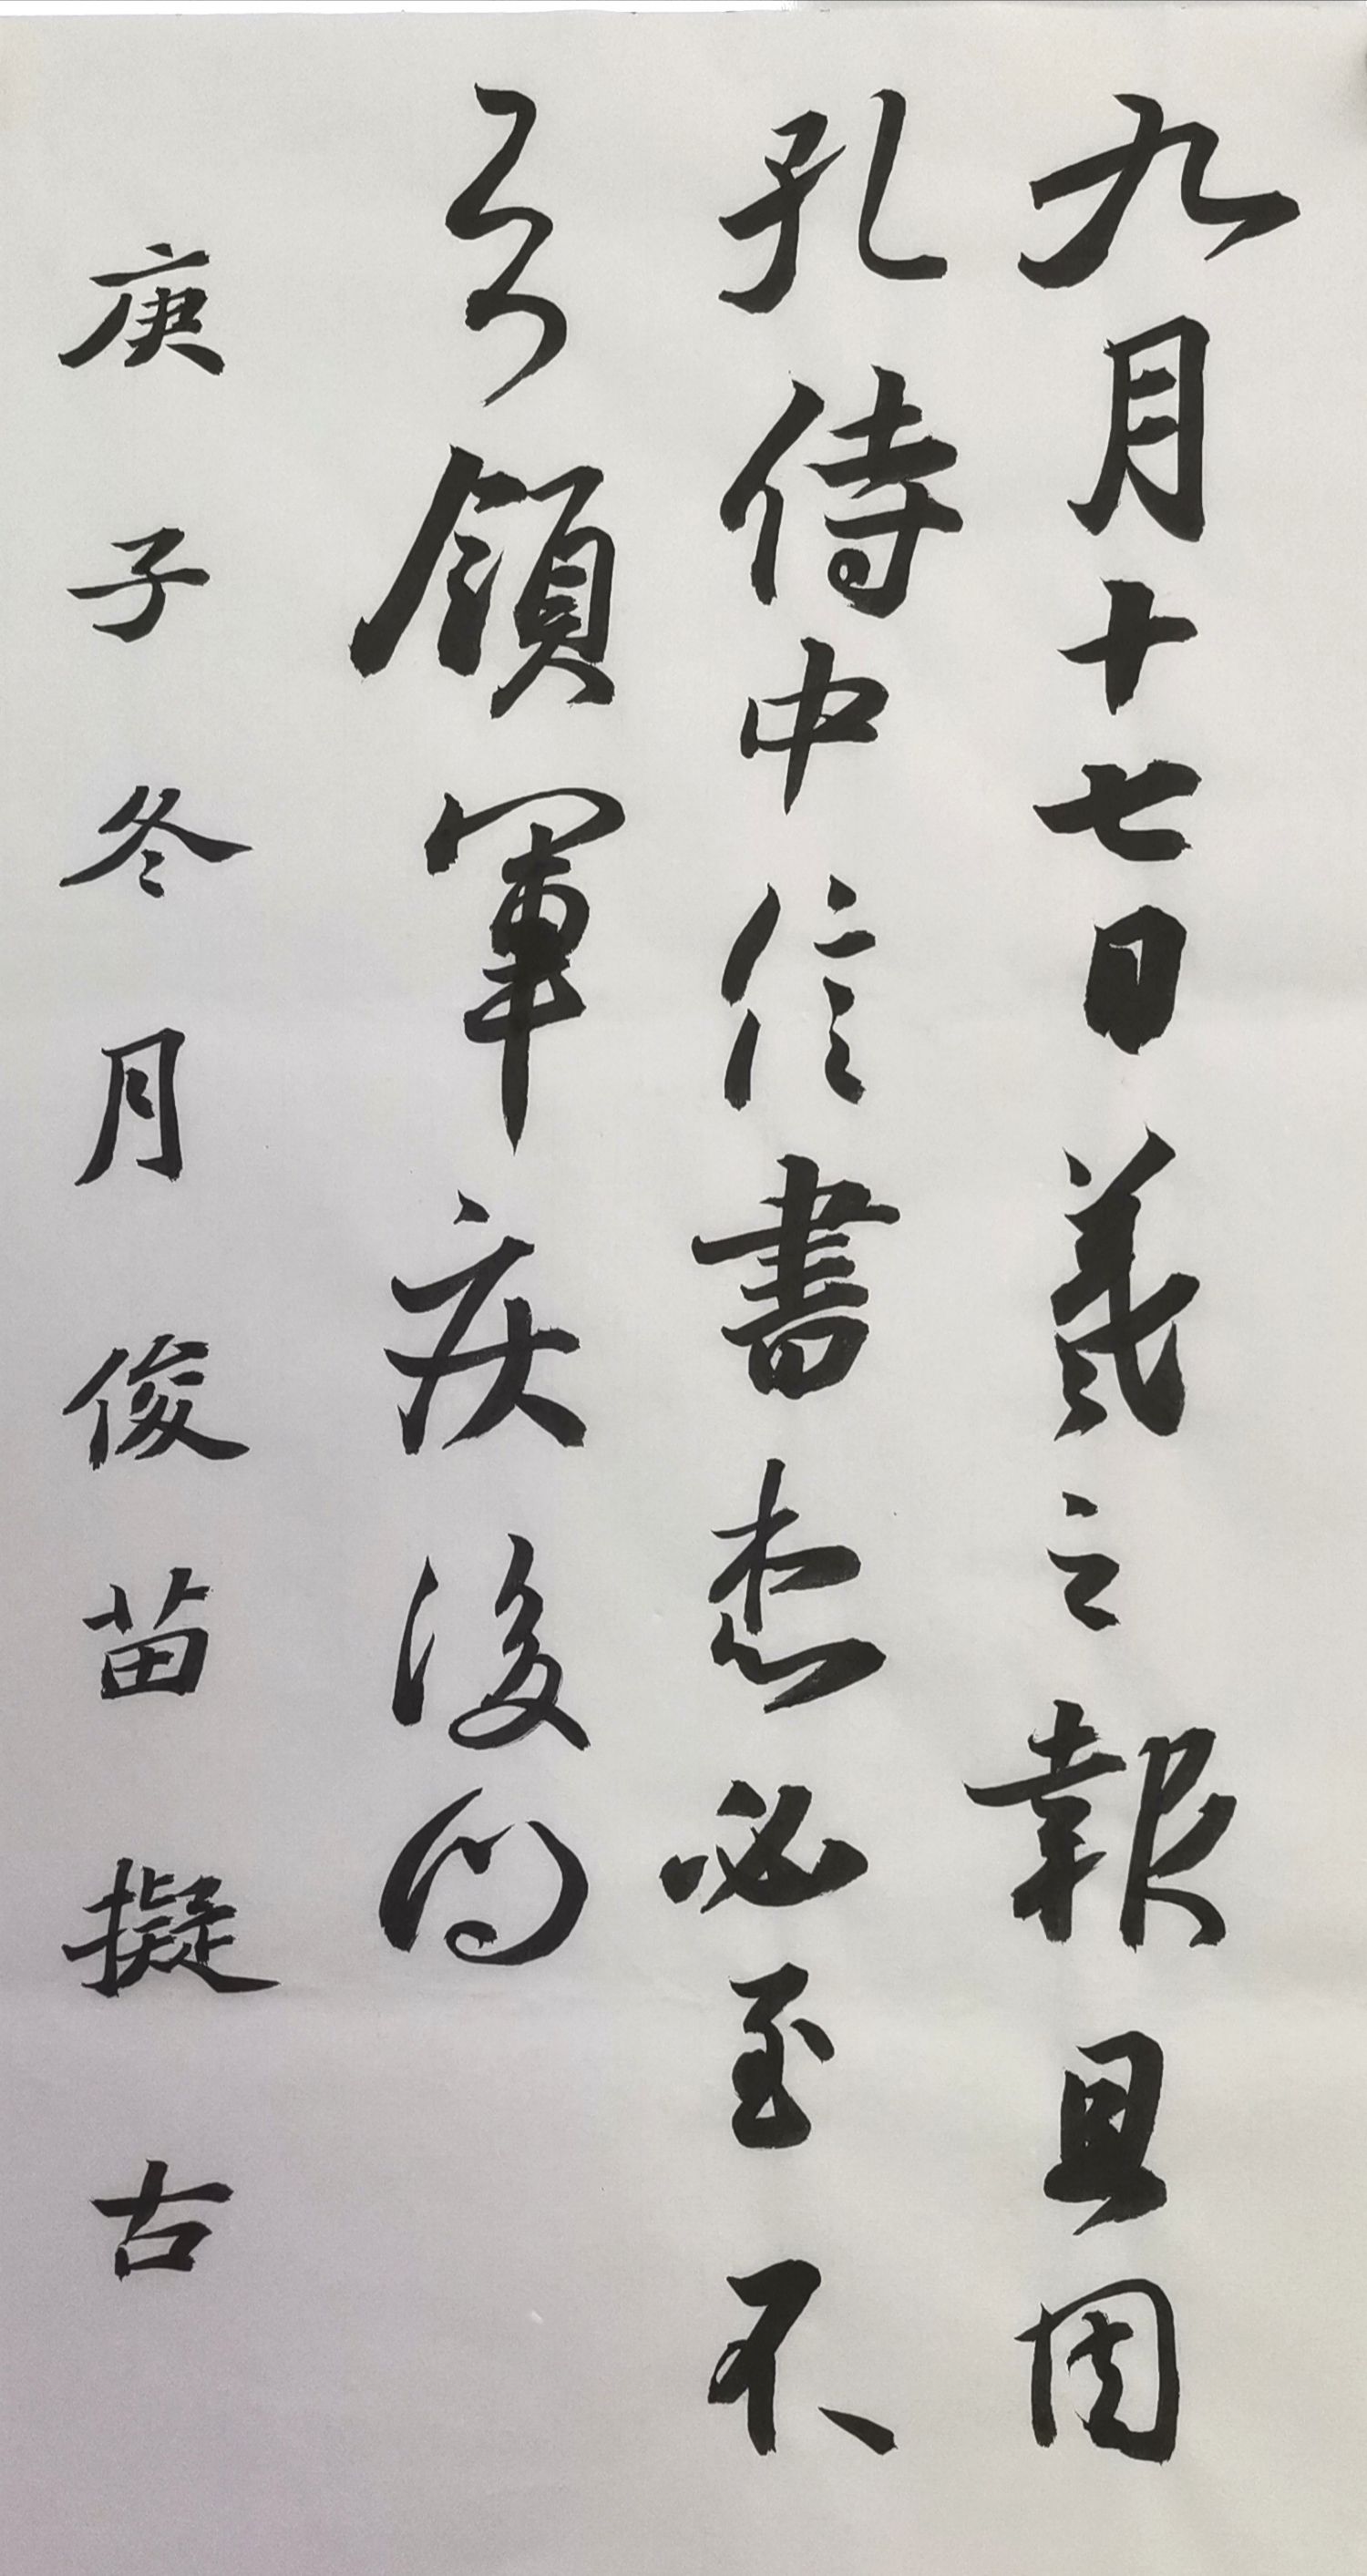 九月十七日羲之報且因
孔侍中信書想必至不
知領軍疾後問
庚子冬月俊苗擬古